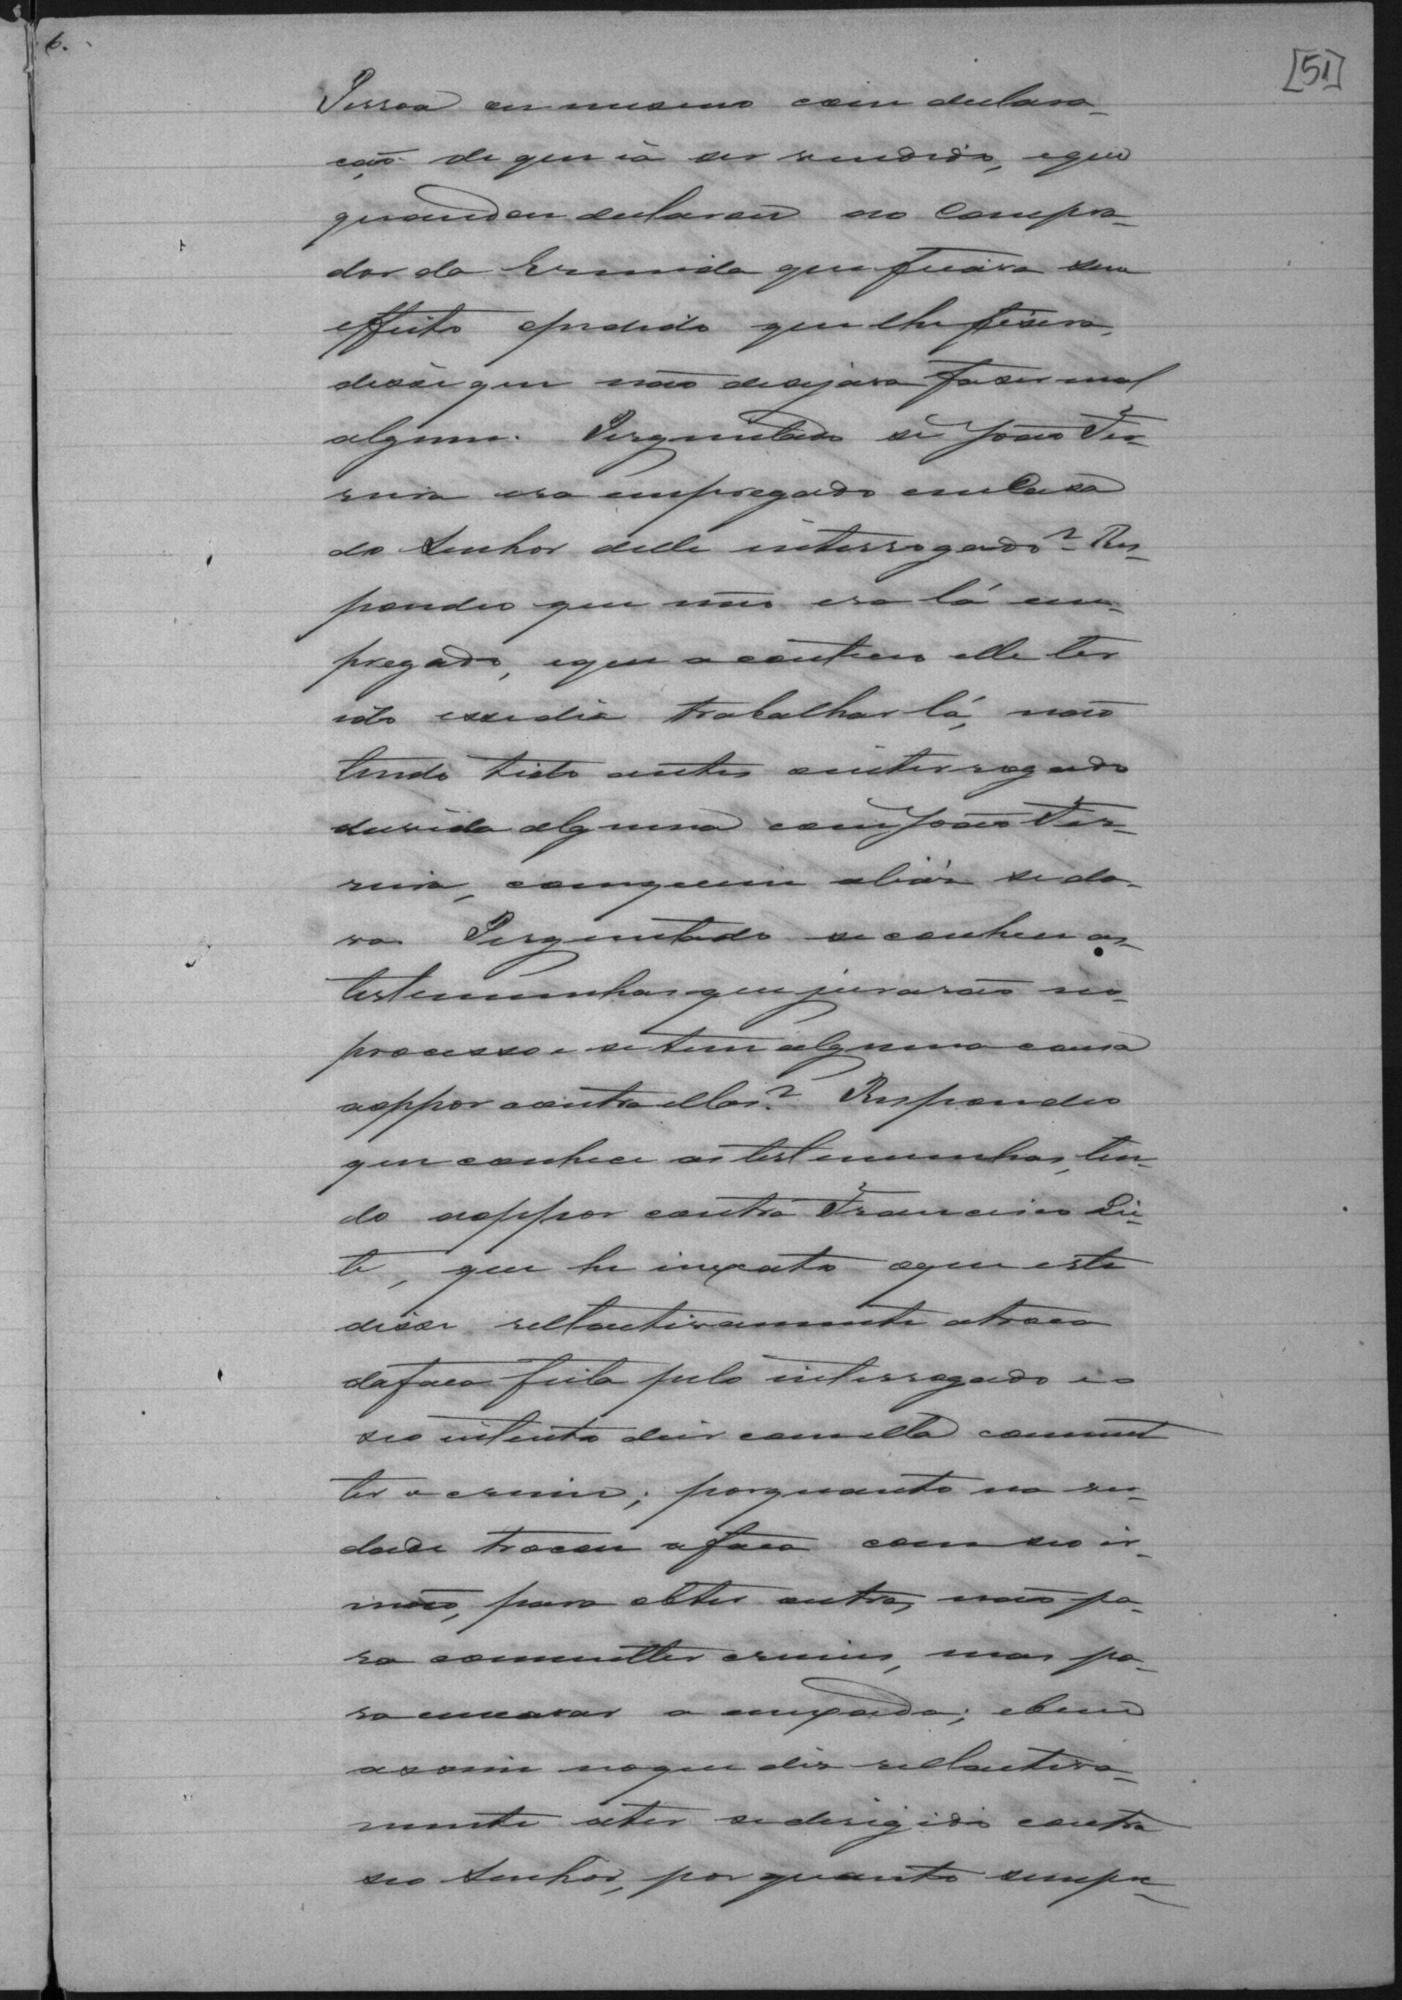 6.
[51]
Pessoa ou mesmo com declara-
ção de que ia ser vendido, e que
quando eu declarou ao Compra-
dor da Ermida que ficára sem
effeito opedido que lhe fisera,
disse que não desejava faser mal
algum. Perguntado se João Fer-
reira era empregado em Casa
do Senhor delle interrogado? Res-
pondeo que não era lá em-
pregado, e que aconteceo elle ter
ido esse dia trabalhar lá, não
tendo tido antes o interrogado
duvida alguma com João Fer-
reira, com quem aliás se da-
va. Perguntado se conhece as
testemunhas que jurarão no
processo e se tem alguma cousa
a oppor contra ellas? Respondeo
que conhece as testemunhas, ten-
do a oppor contra Francisco Lei-
te, que he inexato o que este
disse rellactivamente a troca
da faca feita pelo interrogado e o
seo intento de ir com ella commet
ter o crime; porquanto na ver-
dade trocou a faca com seo ir-
mão, para obter outra, não pa-
ra commetter crimes, mas pa-
ra encavar a enxada; e bem
assim no que diz rellactiva-
mente a ter se derigido contra
seo Senhor, por quanto sempre